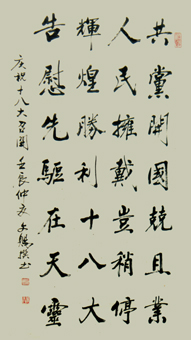 共黨開國兢且業
人民擁戴豈稍停
輝煌勝利十八大
告慰先驅在天靈
庆祝十八大召開 壬辰仲夏